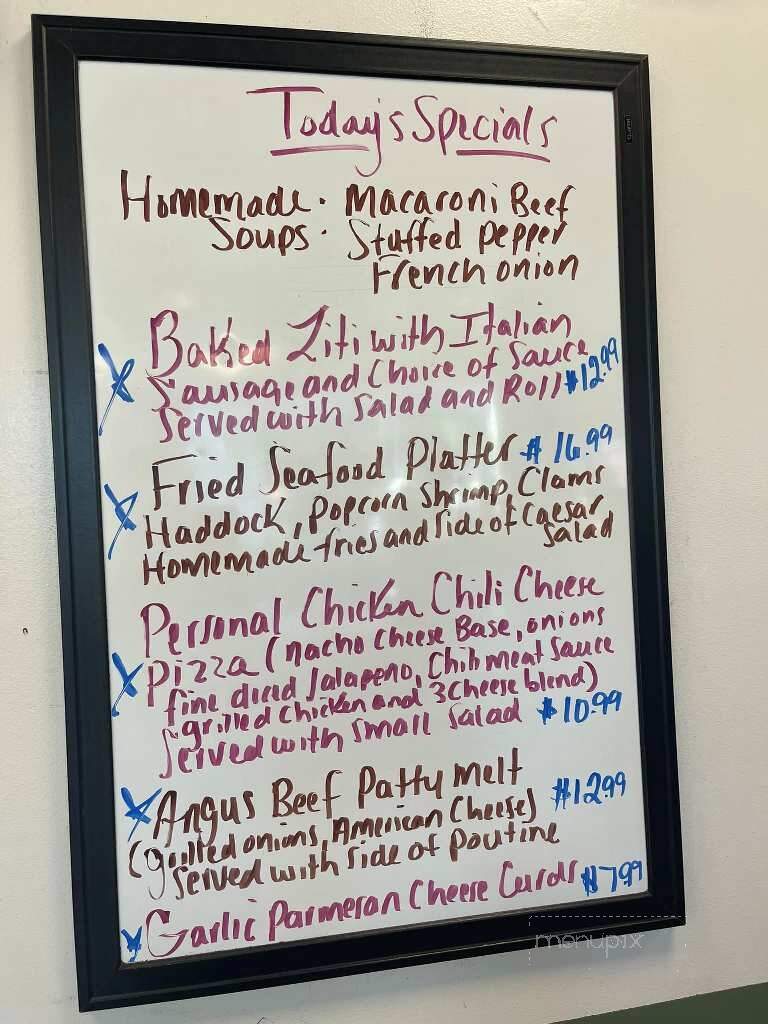 Today's Specials
Homemade · Macaroni Beef
Soups · Stuffed pepper
French onion
Baked Ziti with Italian
Sausage and Choice of Sauce
Served with Salad and Roll $12.99
Fried Seafood Platter $16.99
Haddock, Popcorn Shrimp, Clams
Homemade fries and Side of Caesar
Salad
Personal Chicken Chili Cheese
Pizza (nacho Cheese Base, onions
fine diced Jalapeno, Chili meat Sauce
grilled Chicken and 3 Cheese blend)
Served with Small Salad $10.99
Angus Beef Patty melt $12.99
(grilled onions, American Cheese)
Served with Side of Poutine
Garlic Parmesan Cheese Curds $7.99
menupix